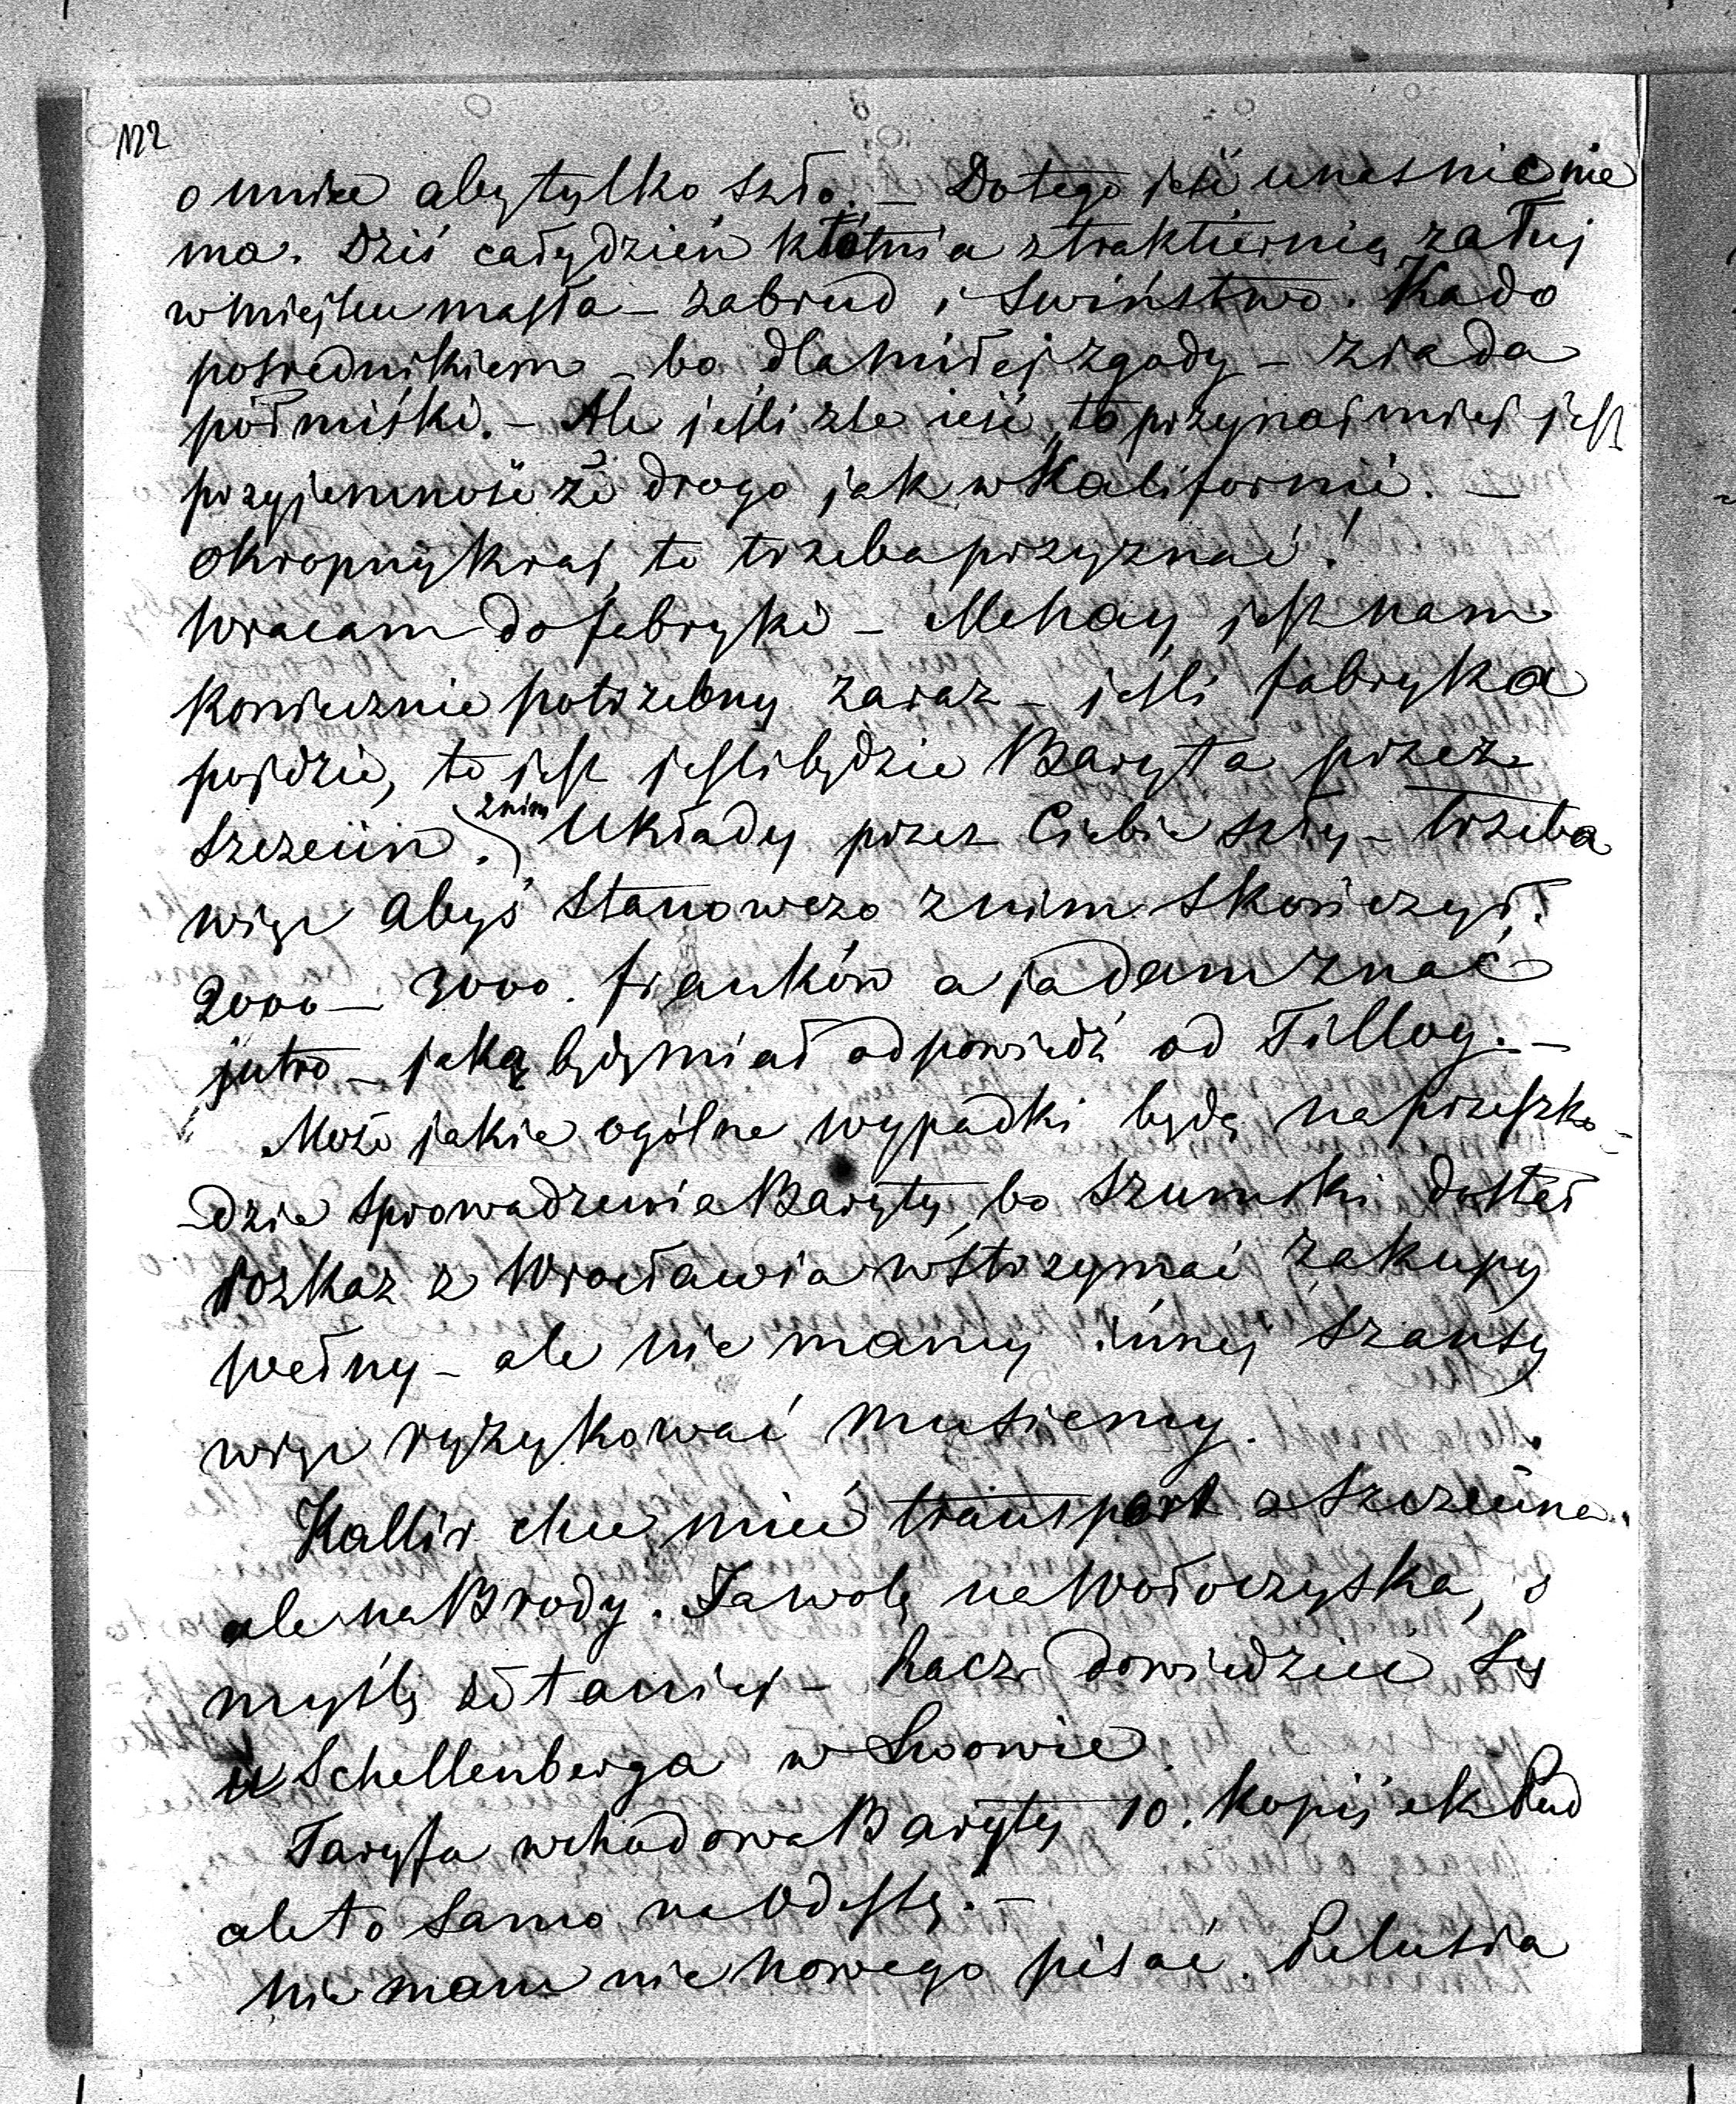 112
o mnie aby tylko szło. — Do tego jeść unas nic nie
ma. Dziś cały dzień kłótnia z traktiernią za łuj
w miejscu masła — za brud i świństwo. Kado
pośrednikiem — bo dla miłej zgody — zjada
półmiski. — Ale jeśli zle jeść, to przynajmniej jest
przyjemność że drogo jak w Kalifornii. —
Okropny kraj, to trzeba przyznać!
Wracam do fabryki — Mehay jest nam
koniecznie potrzebny zaraz — jeśli fabryka
pojdzie, to jest jeśli będzie Baryta przez
Szczecin. z nim Układy przez Ciebie szły — trzeba
więc abyś stanowczo z nim skończył.
2000 — 3000. franków a ja dam znać
jutro — jaką będę miał odpowiedź od Tilloy. —
Może jakie ogólne wypadki będą na przeszko-
-dzie sprowadzenia Baryty, bo Szumski dostał
rozkaz z Wrocławia wstrzymać zakupy
wełny — ale nie mamy innej szansy
więc ryzykować musiemy.
Kallir chce mieć transport z Szczecina
ale na Brody. Ja wolę na Wołoczyska, i
myślę że taniej — Racz dowiedzieć się
u Schellenberga w Lwowie.
Taryfa wchodowa Baryty 10. kopijek Pud
ale to samo na Odessę. —
Nie mam nic nowego pisać. Pelusia